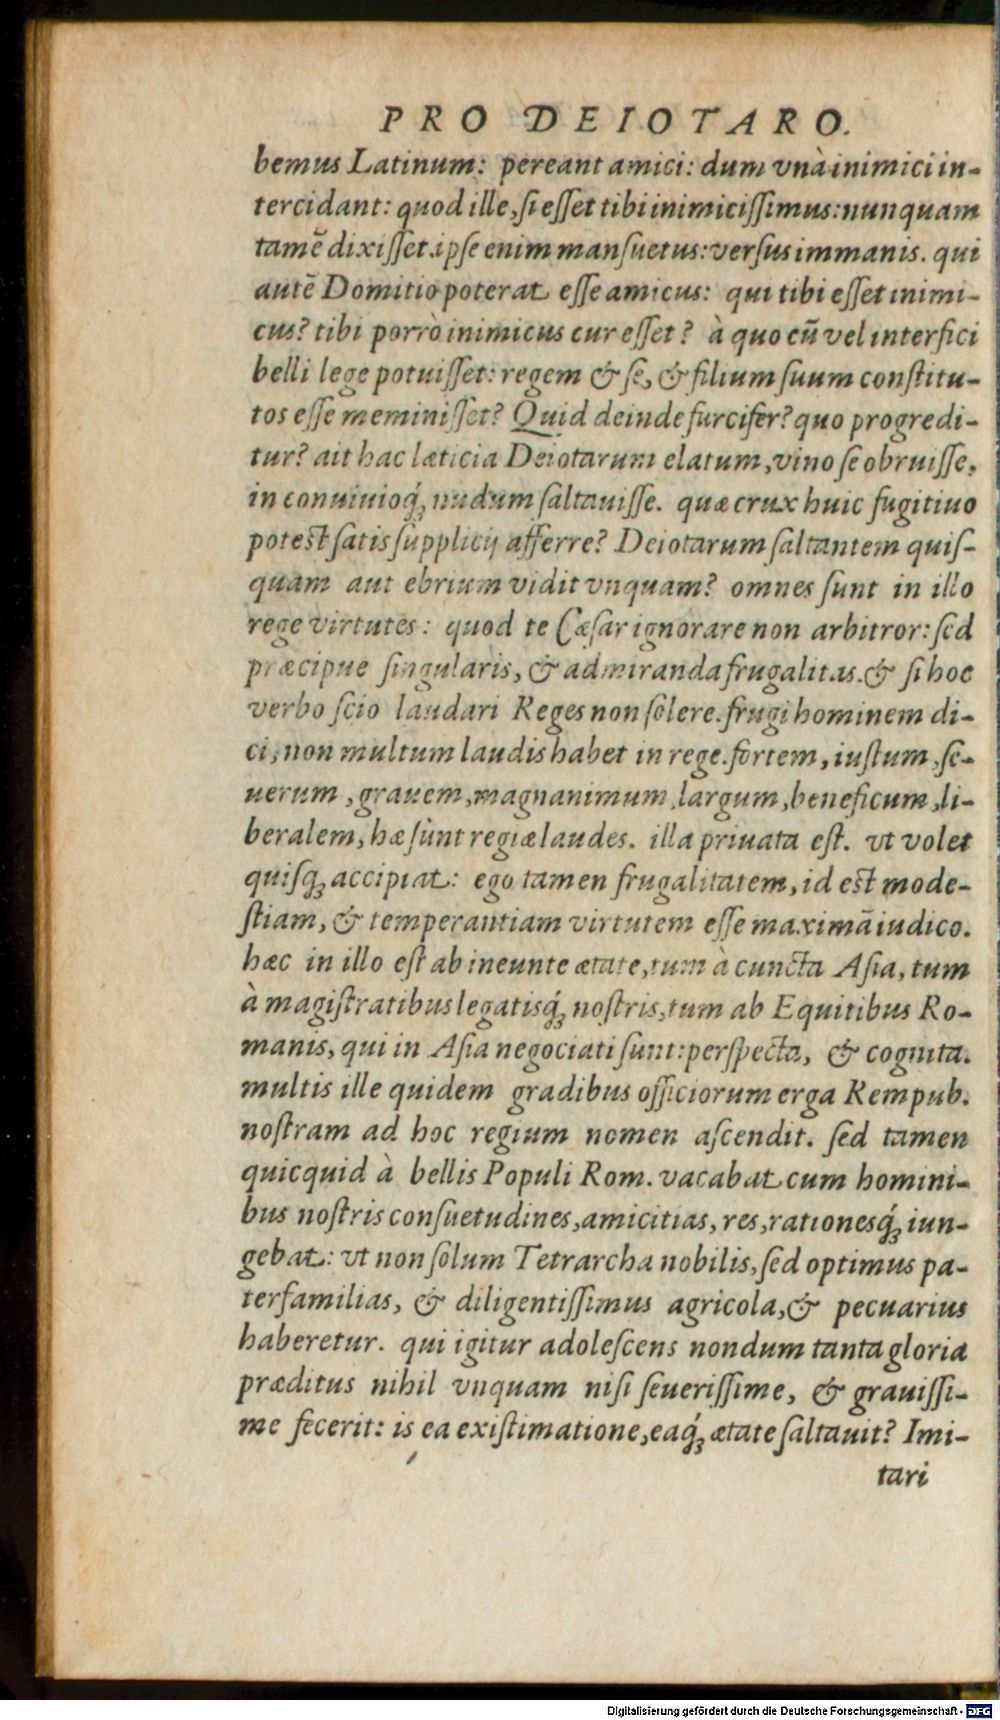 PRO DEIOTARO.
bemus Latinum: pereant amici: dum vnà inimici in-
tercidant: quod ille, ſi eſſet tibi inimiciſſimus: nunquam
tamẽ dixiſſet. ipſe enim manſuetus: verſus immanis. qui
autẽ Domitio poterat eſſe amicus: qui tibi eſſet inimi-
cus? tibi porrò inimicus cur eſſet? à quo cũ vel interfici
belli lege potuiſſet: regem & ſe, & filium ſuum conſtitu-
tos eſſe meminiſſet? Quid deinde furcifer? quo progredi-
tur? ait hac læticia Deiotarum elatum, vino ſe obruiſſe,
in conuiuioq́ꝫ nudum ſaltauiſſe. quæ crux huic fugitiuo
poteſt ſatis ſupplicij afferre? Deiotarum ſaltantem quiſ-
quam aut ebrium vidit vnquam? omnes ſunt in illo
rege virtutes: quod te Cæſar ignorare non arbitror: ſed
præcipue ſingularis, & admiranda frugalitas. & ſi hoc
verbo ſcio laudari Reges non ſolere. frugi hominem di-
ci, non multum laudis habet in rege. fortem, iuſtum, ſe-
uerum, grauem, magnanimum, largum, beneficum, li-
beralem, hæ ſunt regiæ laudes. illa priuata eſt. vt volet
quiſqꝫ accipiat: ego tamen frugalitatem, id eſt mode-
ſtiam, & temperantiam virtutem eſſe maximã iudico.
hæc in illo eſt ab ineunte ætate, tum à cuncta Aſia, tum
à magiſtratibus legatisq́ꝫ noſtris, tum ab Equitibus Ro-
manis, qui in Aſia negociati ſunt: perſpecta, & cognita.
multis ille quidem gradibus officiorum erga Rempub.
noſtram ad hoc regium nomen aſcendit. ſed tamen
quicquid à bellis Populi Rom. vacabat cum homini-
bus noſtris conſuetudines, amicitias, res, rationesq́ꝫ iun-
gebat: vt non ſolum Tetrarcha nobilis, ſed optimus pa-
terfamilias, & diligentiſſimus agricola, & pecuarius
haberetur. qui igitur adoleſcens nondum tanta gloria
præditus nihil vnquam niſi ſeueriſſime, & grauiſſi-
me fecerit: is ea exiſtimatione, eaq́ꝫ ætate ſaltauit? Imi-
tari
Digitalisierung gefördert durch die Deutsche Forschungsgemeinschaft - DFG